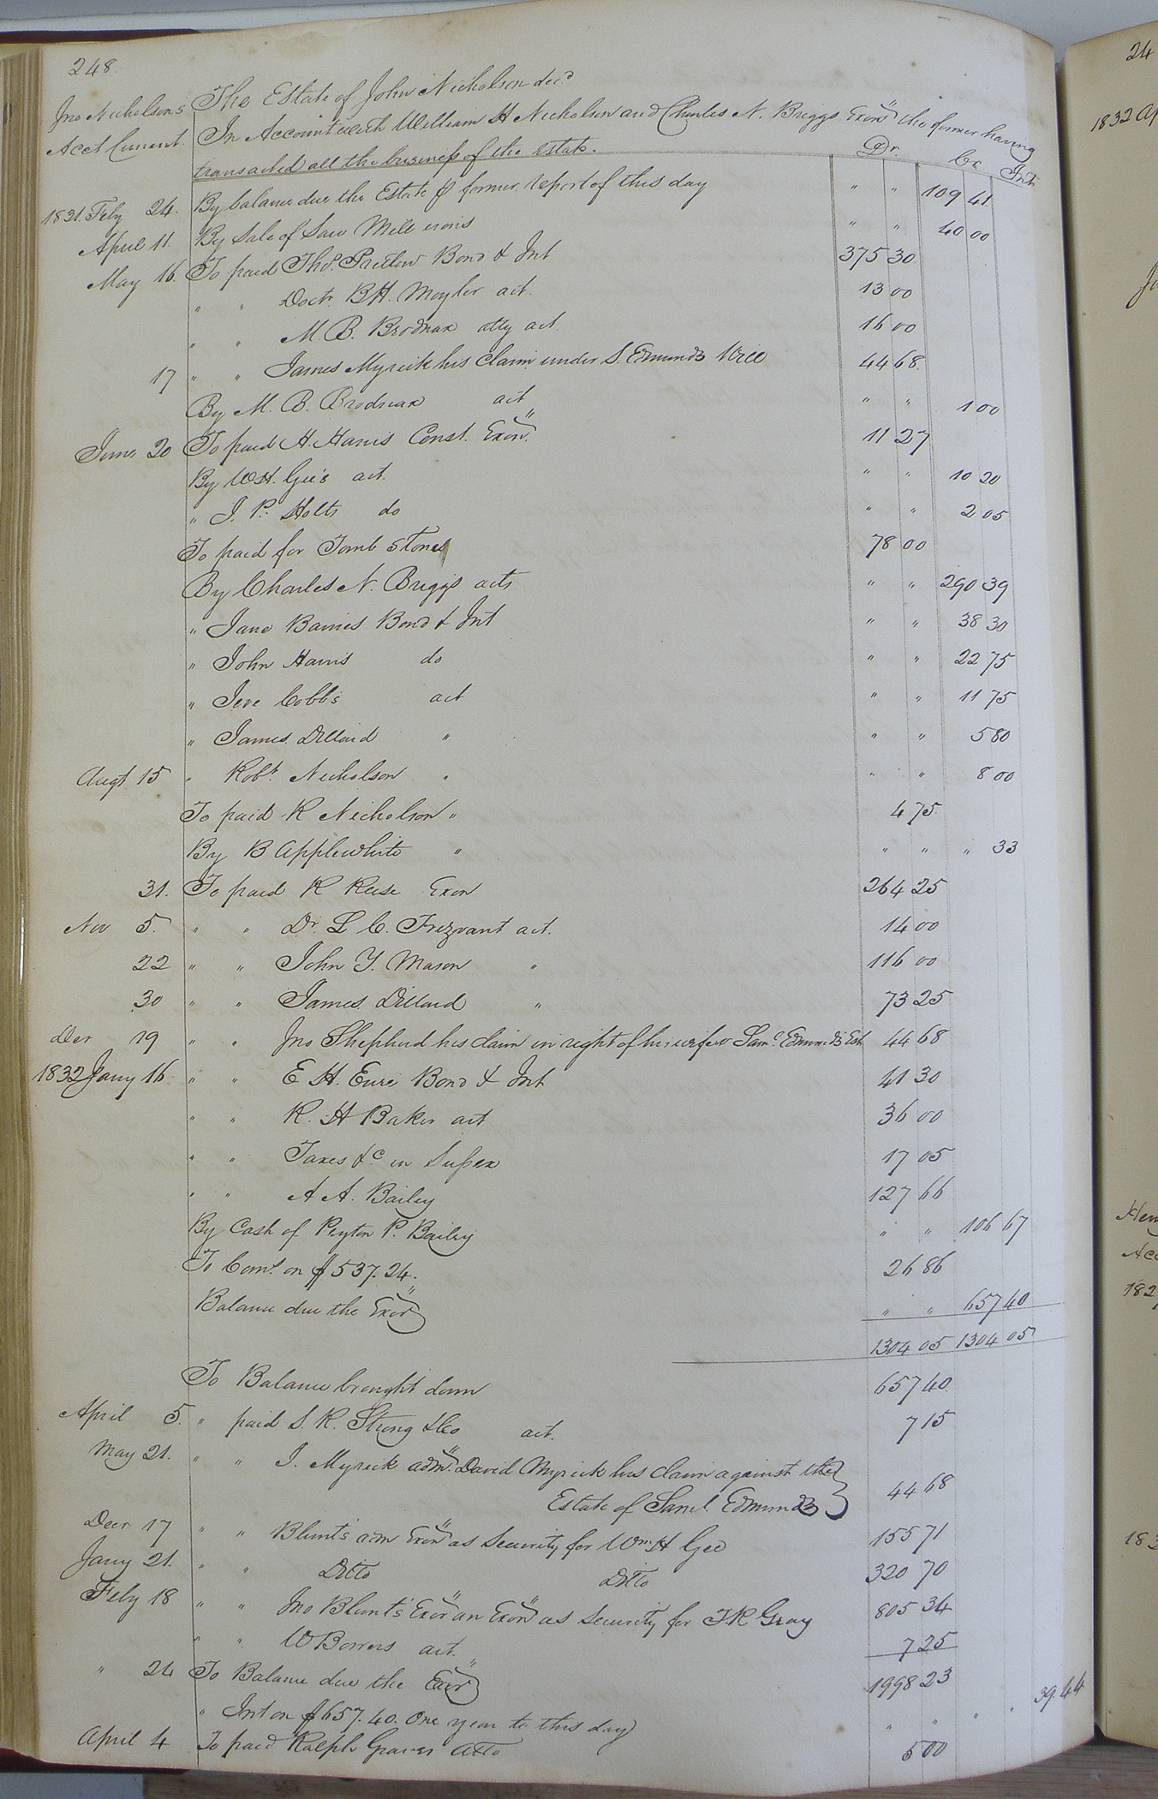 248.
Jno Nicholson's The Estate of John Nicholson decd
Acct Current In Account with William H Nicholson and Charles N. Briggs Exors the former having
transacted all the business of the estate. Dr. Cr Int
1831. Feby 24. By balance due the Estate pr former report of this day " " 109 41
April 11. By Sale of Saw Mill irons " " 40 00
May 16. To paid Thos. Pretlow Bond & Int 375 30
" " Doctr. B H. Moyler act. 13 00
" " M B. Brodnax atty act. 16 00
17 " " James Myrick his claim under S. Edmunds Will 44 68.
By M. B. Brodnax act " " 1 00
June 20 To paid H. Harris Const. Exon. 11 27
By W H. Gee's act. " " 10 20
" J. P. Holts do " " 2 05
To paid for Tomb Stones 78 00
By Charles N. Briggs acts " " 290 39
" Jane Barnes Bond & Int " " 38 30
" John Harris do " " 22 75
" Jere Cobbs act " " 11 75
" James Dillard " " " 5 80
Augt 15 " Robt. Nicholson " " " 8 00
To paid R Nicholson " 4 75
By B Applewhite " " " " 33
31. To paid R Reese Exon 264 25
Nov 5. " " Dr. L C. Trezvant act. 14 00
22 " " John Y. Mason " 116 00
30 " " James Dillard " 73 25
Der 19 " " Jno Shepherd his claim in right of his wife Saml. Edmunds Est 44 68
1832 Jany 16 " " E H. Eure Bond & Int 41 30
" " R. H Baker act 36 00
" " Taxes &c in Sussex 17 05
" " A A. Bailey 127 66
By Cash of Peyton P. Bailey " " 106 67
To Coms. on $537.24. 26 86
Balance due the Exor " " 657 40
1304 05 1304 05
To Balance brought down 657 40.
April 5. " paid S. R. Strong & Co act. 7 15
May 21. " " J. Myrick admr. David Myrick his claim against the
Estate of Saml. Edmunds 44 68
Decr 17 " " Blunt's adm Exon as Security for Wm H Gee 155 71
Jany 21. " " Ditto Ditto 320 70
Feby 18 " " Jno Blunt's Exor an Exon as Security for T R Gray 805 34
" " W Borrers act. 7 25
" 24 To Balance due the Exor 1998 23
" Int on $657.40. One year to this day " " " " 39.44
April 4 To paid Ralph Graves atto 5 00
24
1832 Ap
Hen
Acc
182
183